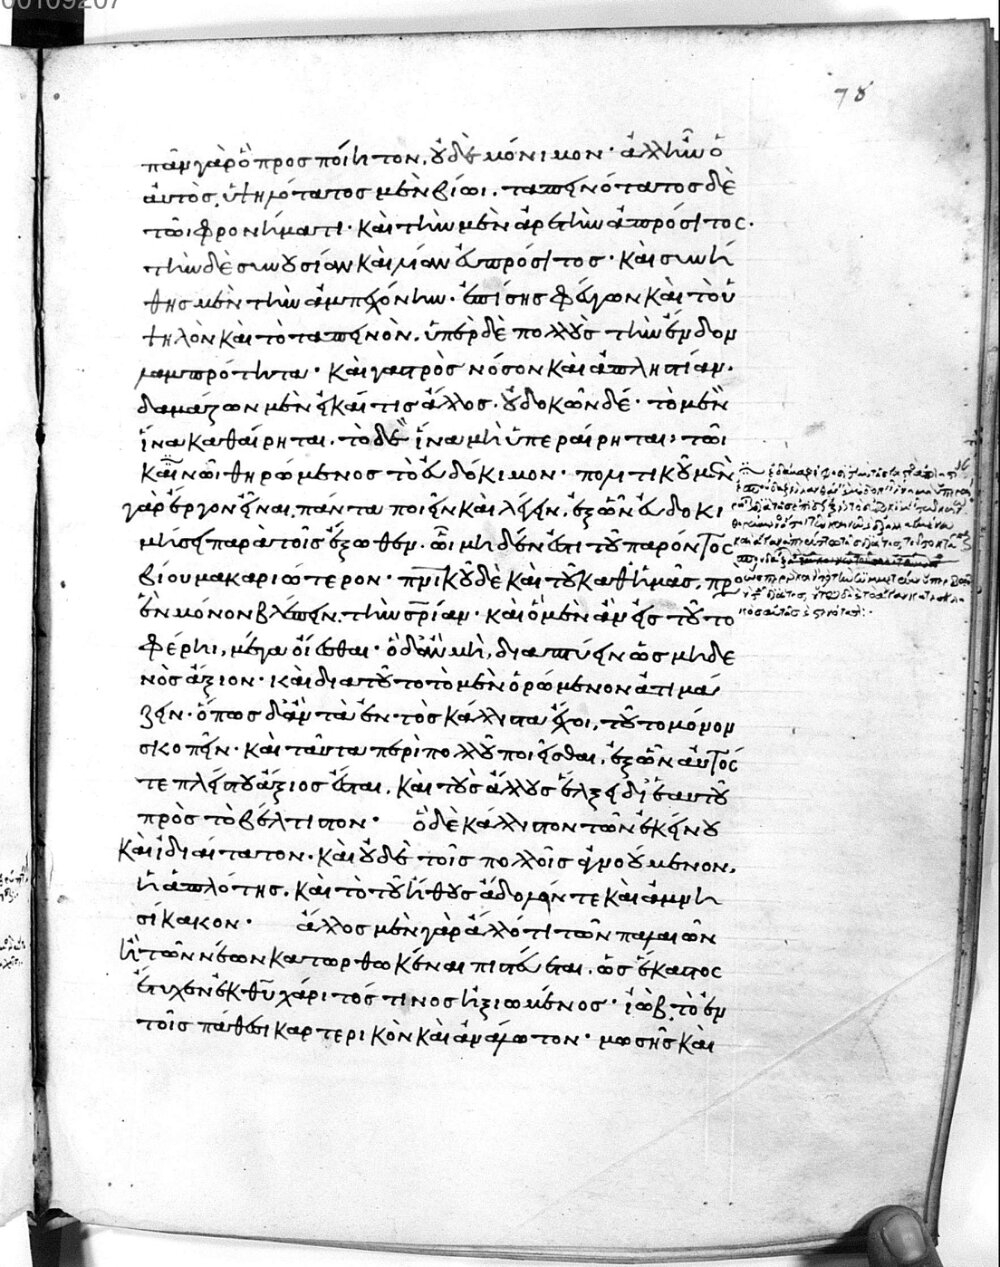 00109207
78
πᾶν γὰρ ὃ προσποίητον, οὐδὲ μόνιμον· ἀλλ' ἦν ὁ
αὐτὸς, ὑψηλότατος μὲν βίωι. ταπεινότατος δὲ
τῶι φρονήματι· καὶ τὴν μὲν ἀρετὴν ἀπρόσιτος·
τὴν δὲ συνουσίαν καὶ λίαν εὐπρόσιτος· καὶ συνή
θης μὲν τὴν ἀμπεχόνην· ἐπίσης φεύγων καὶ τὸ ὑ
ψηλὸν καὶ τὸ ταπεινὸν. ὑπὲρ δὲ πολλοὺς τὴν ἔνδον
λαμπρότητα· καὶ γαστρὸς νόσον καὶ ἀπληστίαν.
δαμάζων μὲν εἰ καί τις ἄλλος. οὐ δοκῶν δέ· τὸ μὲν
ἵνα καθαίρηται. τὸ δὲ ἵνα μὴ ὑπεραίρηται· τῶι
καινῶι θηρώμενος τὸ εὐδόκιμον· πολιτικοῦ μὲν
γὰρ ἔργον εἶναι, πάντα ποιεῖν καὶ λέγειν, ἐξ ὧν εὐδοκι
μήσει παρὰ τοῖς ἔξωθεν. ὧι μηδὲν ἐστι τοῦ παρόντος
βίου μακαριώτερον· πνικοῦ δὲ καὶ τοῦ καθ' ἡμᾶς, πρὸς
ἓν μόνον βλέπειν. τὴν σρίαν· καὶ ὃ μὲν ἂν εἰς τοῦτο
φέρηι, μέγα οἴεσθαι· ὃ δ' ἂν μὴ, διαπτύειν ὡς μηδε
νὸς ἄξιον· καὶ διατοῦτο τὸ μὲν ὁρώμενον ἀτιμά
ζειν· ὅπως δ' ἂν τὰ ἐντὸς κάλλιστα ἔχοι, τοῦτο μόνον
σκοπεῖν· καὶ ταῦτα περὶ πολλοῦ ποιεῖσθαι, ἐξ ὧν αὐτός
τε πλείστου ἄξιος ἔσται. καὶ τοὺς ἄλλους ἕλξει δι' ἑαυτοῦ
πρὸς τὸ βέλτιστον· ὃ δὲ κάλλιστον τῶν ἐκείνου
καὶ ἰδιαίτατον. καὶ οὐδὲ τοῖς πολλοῖς ἀγνοούμενον.
ἡ ἁπλότης. καὶ τὸ τοῦ ἤθους ἄδολόν τε καὶ ἀμνη
σίκακον· ἄλλος μὲν γὰρ ἄλλό τι τῶν παλαιῶν
ἢ τῶν νέων κατωρθωκέναι πιστεύεται. ὡς ἕκαστος
ἔτυχεν ἐκ θῦ χάριτός τινος ἠξιωμένος· ἰὼβ, τὸ ἐν
τοῖς πάθεσι καρτερικὸν καὶ ἀνάλωτον· μωσῆς καὶ